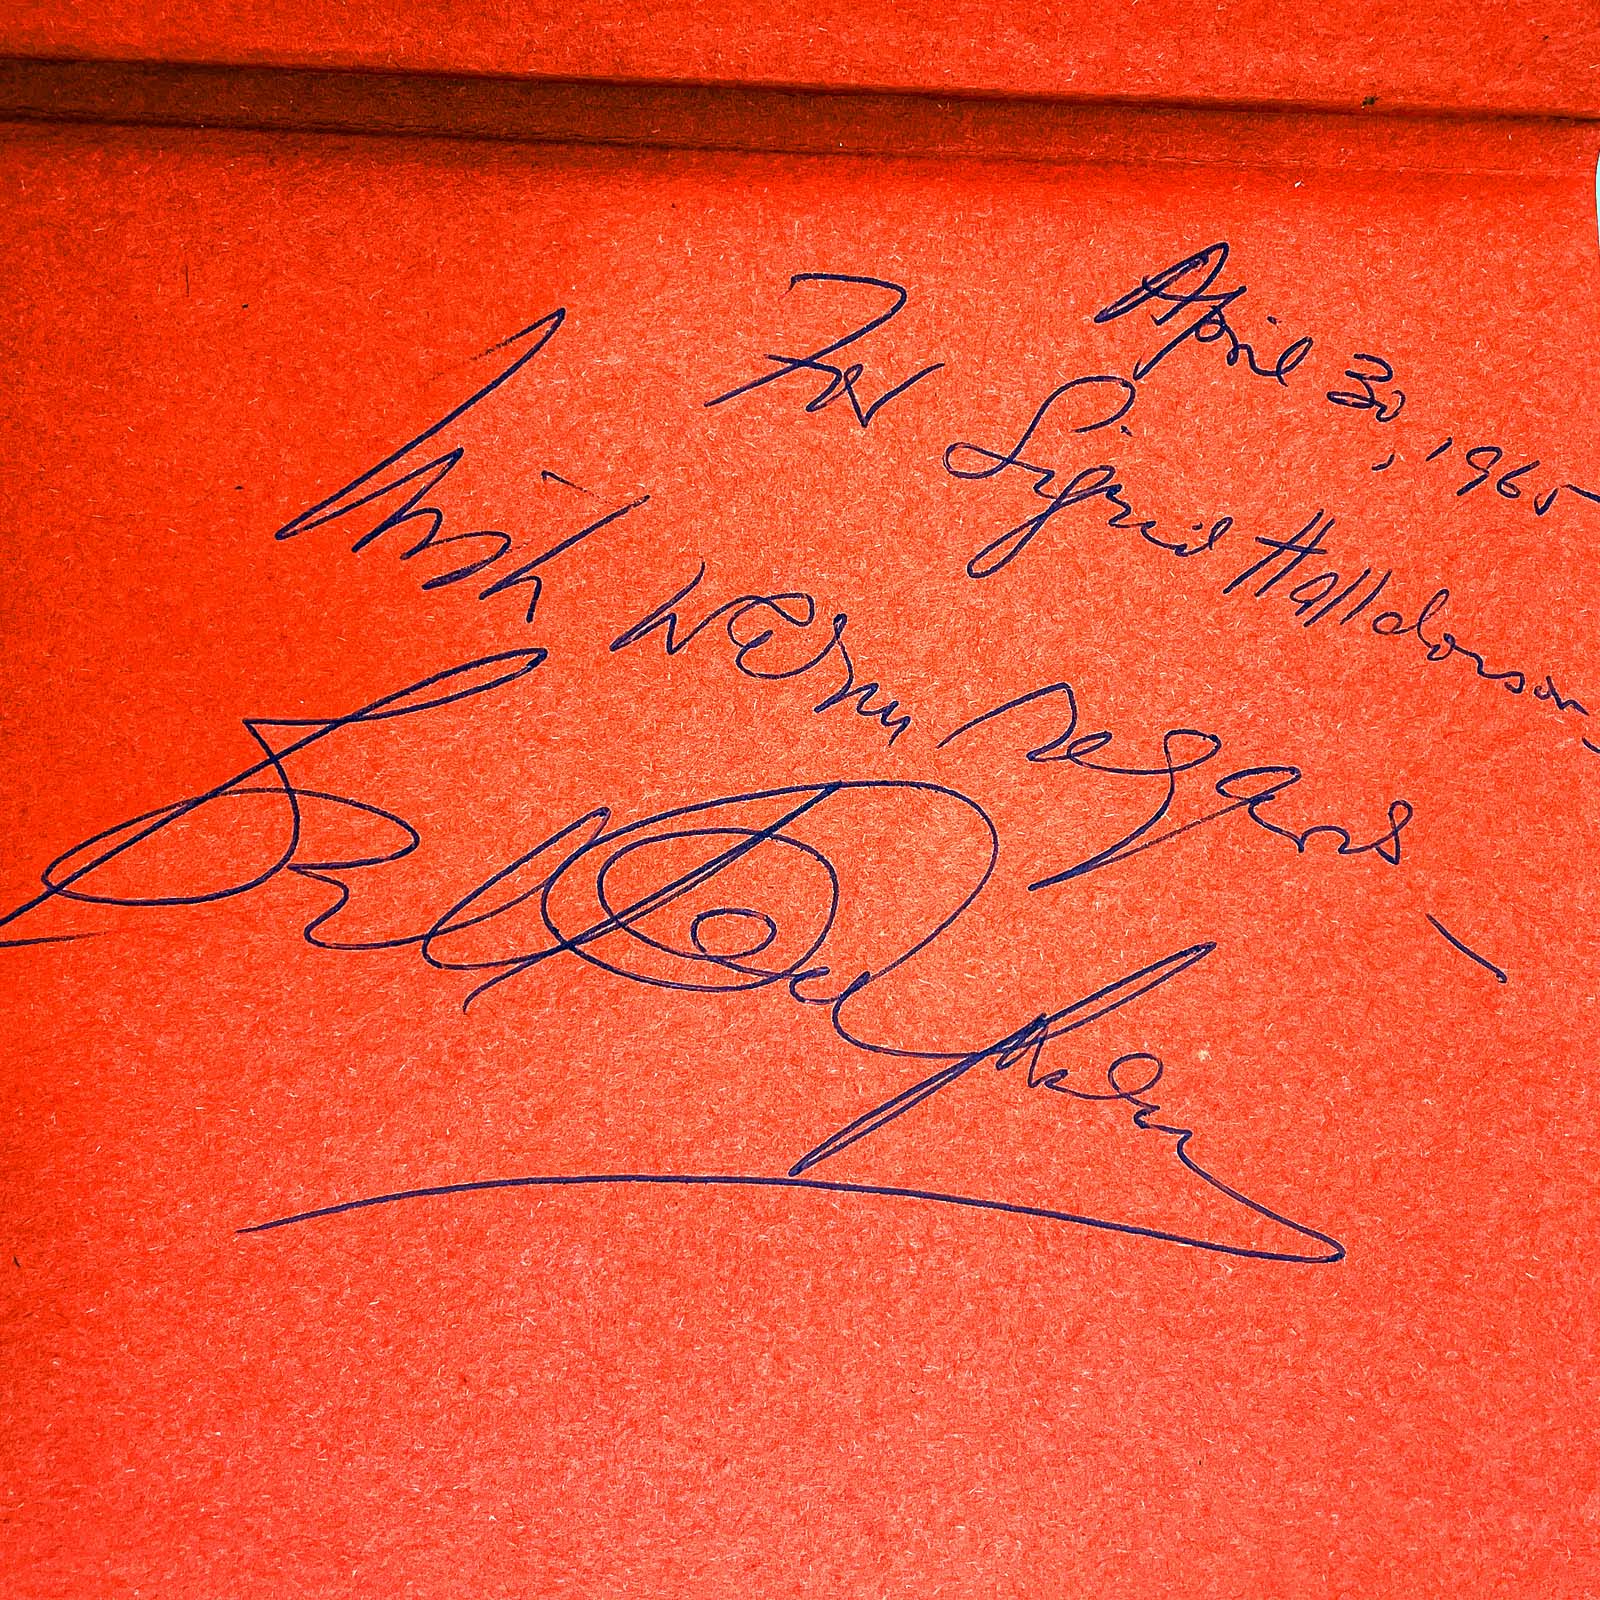 April 30, 1965
For Sigrid Halldorson,
With warm regards